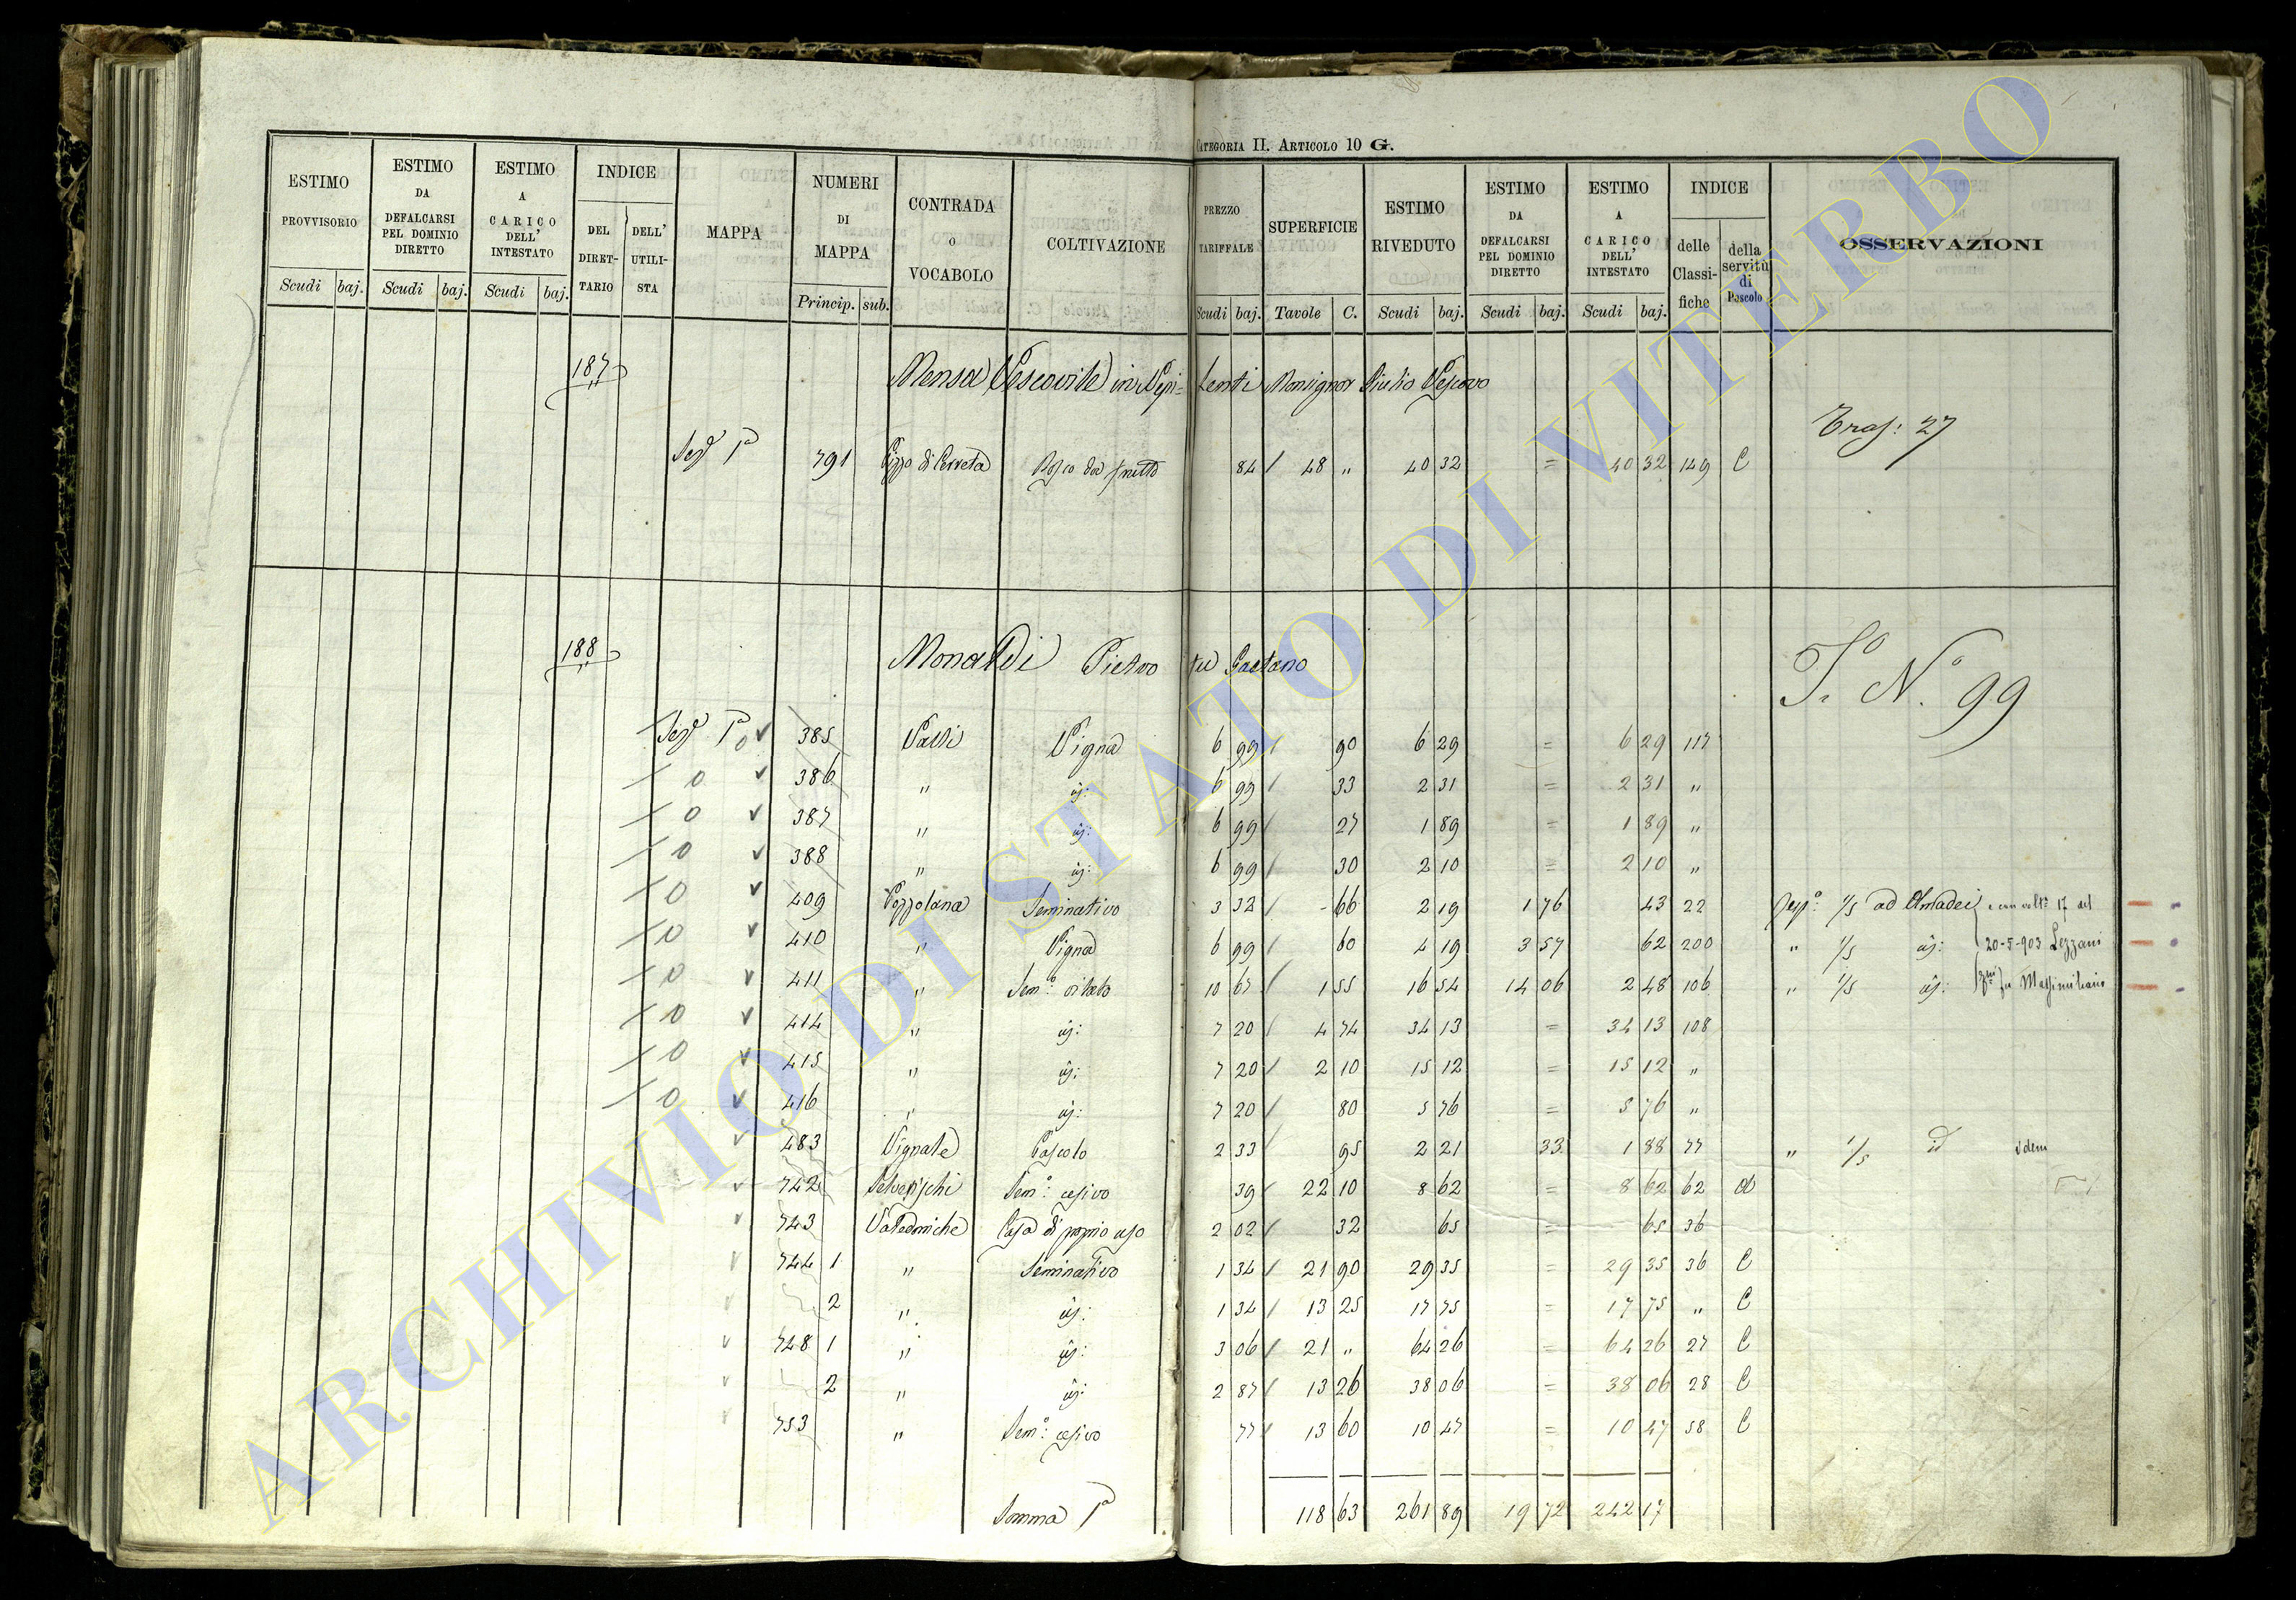 CATEGORIA II. ARTICOLO 10 G.
ESTIMO PROVVISORIO Scudi baj. ESTIMO DA DEFALCARSI PEL DOMINIO DIRETTO Scudi baj. ESTIMO A CARICO DELL' INTESTATO Scudi baj. INDICE DEL DIRET-TARIO DELL' UTILI-STA MAPPA NUMERI DI MAPPA Princip. sub. CONTRADA O VOCABOLO COLTIVAZIONE PREZZO TARIFFALE Scudi baj. SUPERFICIE Tavole C. ESTIMO RIVEDUTO Scudi baj. ESTIMO DA DEFALCARSI PEL DOMINIO DIRETTO Scudi baj. ESTIMO A CARICO DELL' INTESTATO Scudi baj. INDICE delle Classi-fiche della servitù di Pascolo OSSERVAZIONI
187 Mensa Vescovile in Nepi = Lenti Monsignor Giulio Vescovo
Tras: 27
Sez.e 1a 791 Pizzo di Cerreta Bosco da frutto 84 48 " 40 32 = 40 32 149 C
188 Monaldi Pietro fu Gaetano
To No. 99
Sez.e 1a 0 385 Valli Vigna 6 99 90 6 29 = 6 29 117
0 386 " id: 6 99 33 2 31 = 2 31 "
0 387 " id: 6 99 27 1 89 = 1 89 "
0 388 " id: 6 99 30 2 10 = 2 10 "
0 409 Pozzolana Seminativo 3 32 - 66 2 19 1 76 43 22 1/5 ad Amadei e con volt.a 17 del
0 410 " Vigna 6 99 60 4 19 3 57 62 200 " 1/5 id: 20-5-903 Lezzani
0 411 " Sem.o vitato 10 67 1 55 16 54 14 06 2 48 106 " 1/5 id: fu Massimiliano
0 414 " id: 7 20 4 74 34 13 = 34 13 108
0 415 " id: 7 20 2 10 15 12 = 15 12 "
0 416 " id: 7 20 80 5 76 = 5 76 "
483 Vignale Pascolo 2 33 95 2 21 33 1 88 77 " 1/5 id idem
742 Sem.o cesivo 39 22 10 8 62 = 8 62 62 d
743 Casa di proprio uso 2 02 32 65 = 65 36
744 1 " Seminativo 1 34 21 90 29 35 = 29 35 36 C
2 " id: 1 34 13 25 17 75 = 17 75 " C
748 1 " id: 3 06 21 " 64 26 = 64 26 27 C
2 " id: 2 87 13 26 38 06 = 38 06 28 C
753 " Sem.o cesivo 77 13 60 10 47 = 10 47 58 C
Somma 1a 118 63 261 89 19 72 242 17
ARCHIVIO DI STATO DI VITERBO